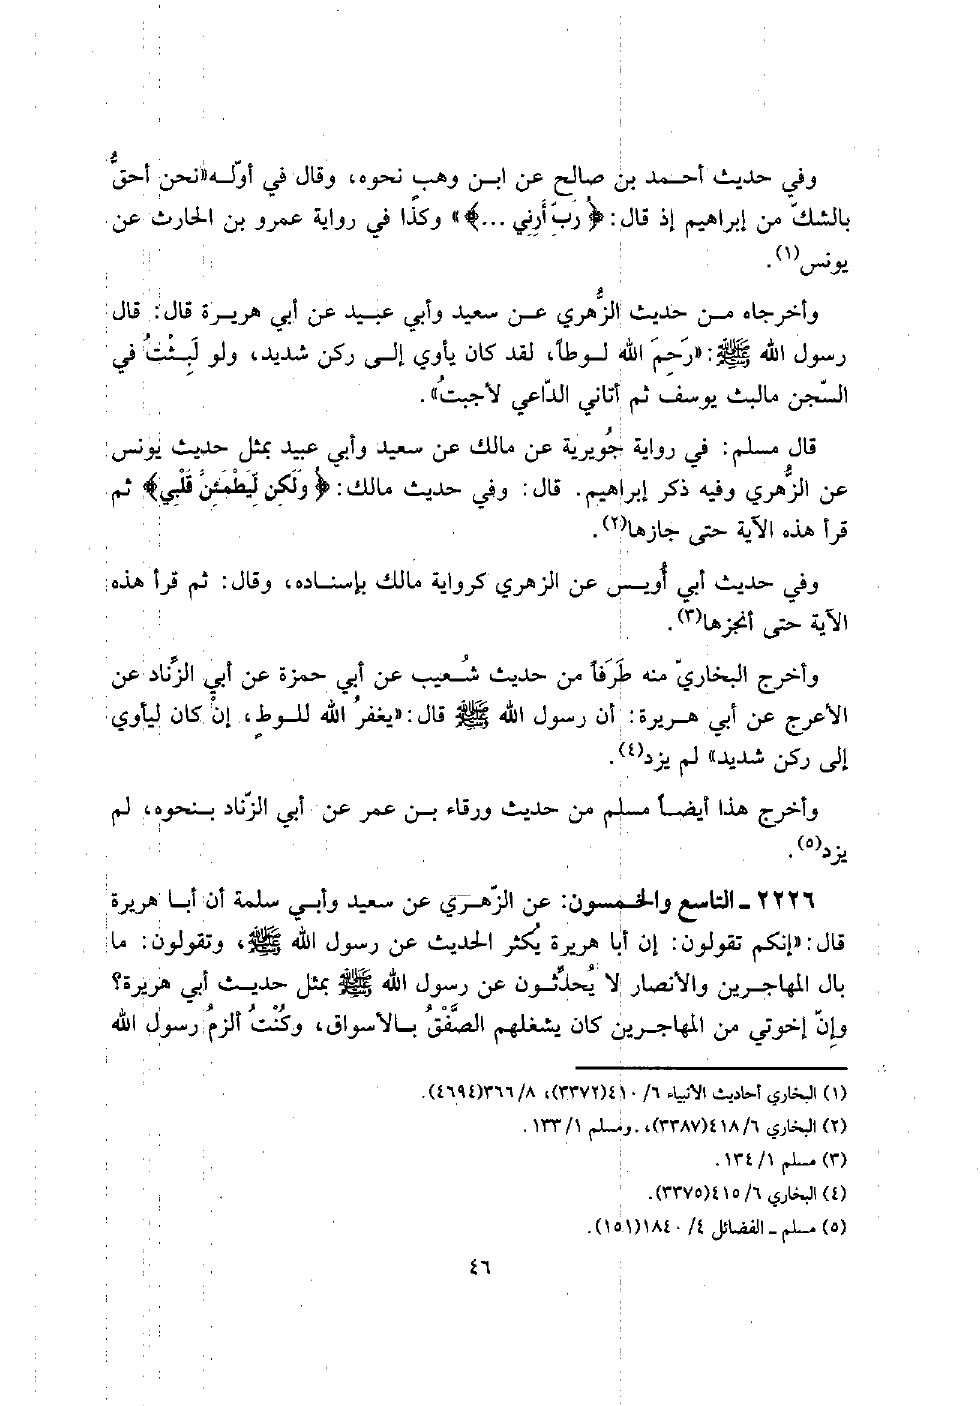 وفي حديث أحمد بن صالح عن ابن وهبٍ نحوه، وقال في أوّله«نحن أحقُّ
بالشكّ من إبراهيم إذ قال: ﴿رَبّ أَرِني ...﴾» وكذا في رواية عمرو بن الحارث عن
يونس(١).
وأخرجاه من حديث الزُّهري عن سعيد وأبي عبيد عن أبي هريرة قال: قال
رسول الله ﷺ: «رَحِمَ الله لوطاً، لقد كان يأوي إلى ركن شديد، ولو لَبِثْتُ في
السّجن مالبث يوسفَ ثم أتاني الدّاعي لأجبتُ».
قال مسلم: في رواية جُويرية عن مالك عن سعيد وأبي عبيد بمثل حديث يونس
عن الزُّهري وفيه ذكر إبراهيم. قال: وفي حديث مالك: ﴿وَلَكِن لِّيَطْمَئِنَّ قَلْبِي﴾ ثم
قرأ هذه الآية حتى جازها(٢).
وفي حديث أبي أُويس عن الزهري كرواية مالك بإسناده، وقال: ثم قرأ هذه
الآية حتى أنجزها(٣).
وأخرج البخاريّ منه طَرَفاً من حديث شُعيب عن أبي حمزة عن أبي الزِّناد عن
الأعرج عن أبي هريرة: أن رسول الله ﷺ قال: «يغفرُ الله للوطٍ، إنْ كان ليأوي
إلى ركن شديد» لم يزد(٤).
وأخرج هذا أيضاً مسلم من حديث ورقاء بن عمر عن أبي الزّناد بنحوه، لم
يزد(٥).
٢٢٢٦ ـ التاسع والخمسون: عن الزّهري عن سعيد وأبي سلمة أن أبا هريرة
قال: «إنكم تقولون: إن أبا هريرة يُكثر الحديث عن رسول الله ﷺ، وتقولون: ما
بال المهاجرين والأنصار لا يُحدِّثون عن رسول الله ﷺ بمثل حديث أبي هريرة؟
وإنّ إخوتي من المهاجرين كان يشغلهم الصَّفْقُ بالأسواق، وكُنْتُ ألزمُ رسول الله
(١) البخاري أحاديث الأنبياء ٦/ ٤١٠(٣٣٧٢)، ٨/ ٣٦٦(٤٦٩٤).
(٢) البخاري ٦/ ٤١٨(٣٣٨٧)، ومسلم ١/ ١٣٣.
(٣) مسلم ١/ ١٣٤.
(٤) البخاري ٦/ ٤١٥(٣٣٧٥).
(٥) مسلم ـ الفضائل ٤/ ١٨٤٠(١٥١).
٤٦